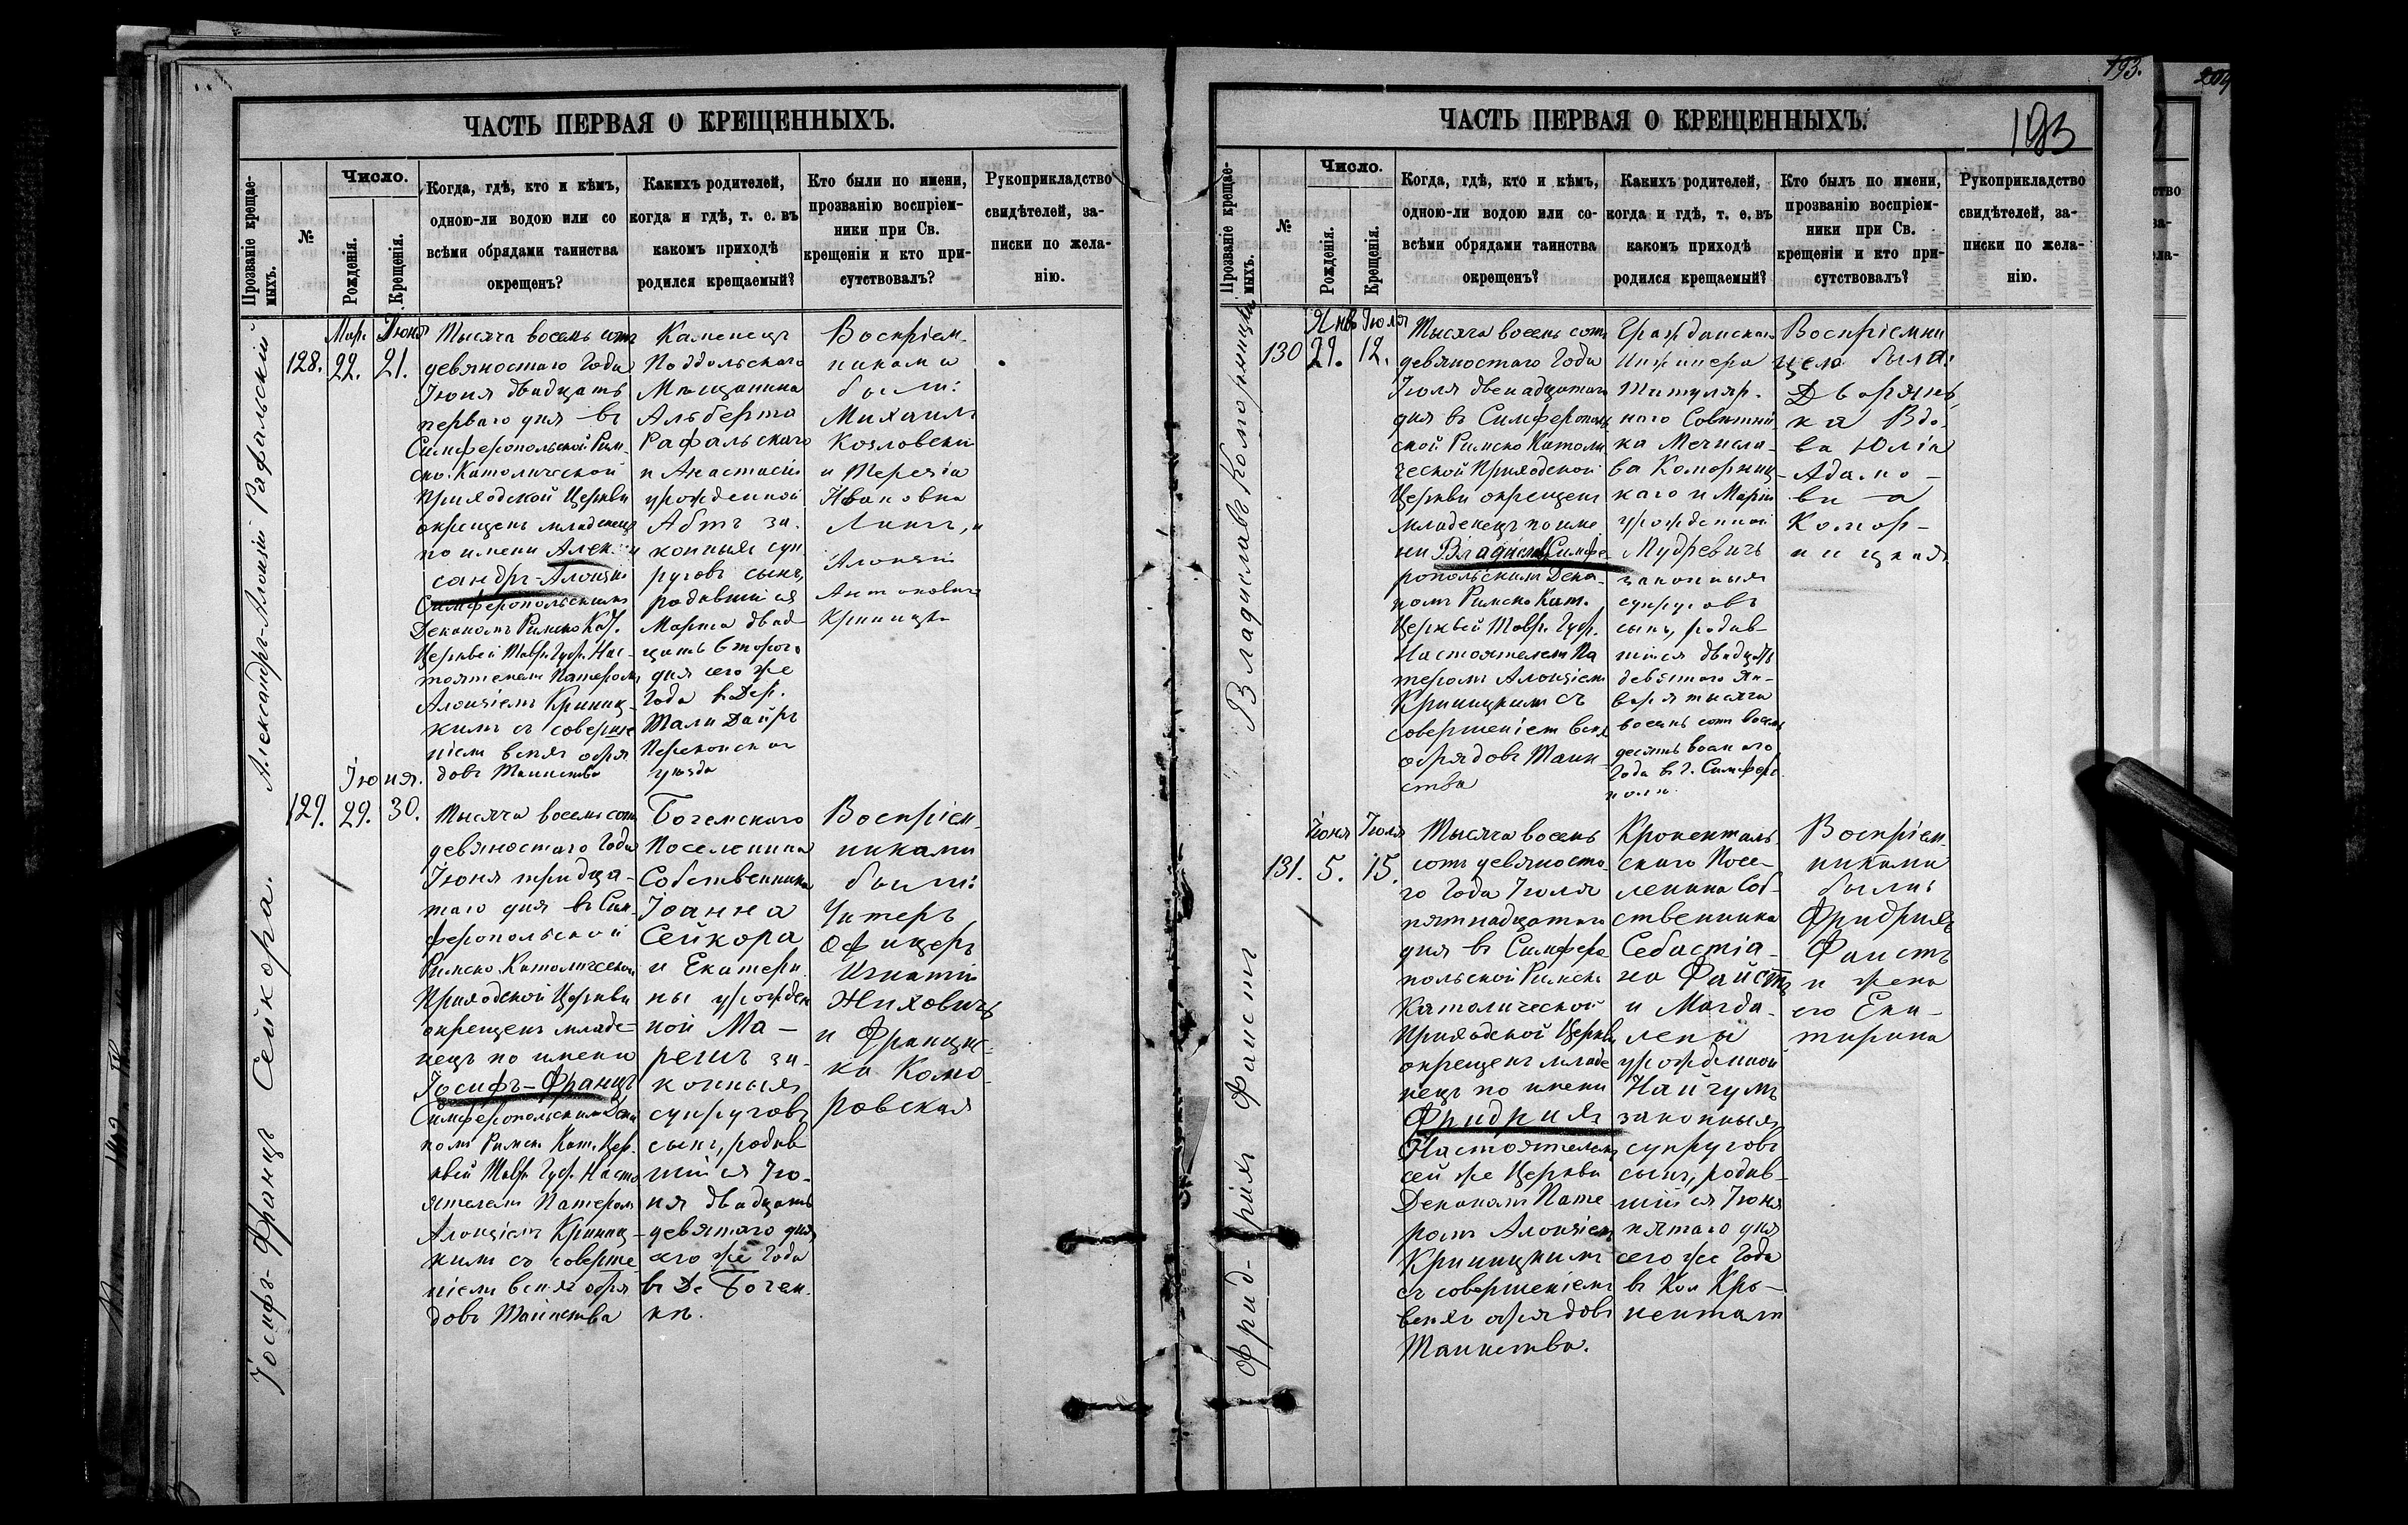 ЧАСТЬ ПЕРВАЯ О КРЕЩЕННЫХЪ.
Прозваніе крещае-
мыхъ.
№
Число.
Рожденія.
Крещенія.
Когда, гдѣ, кто и кѣмъ,
одною-ли водою или со
всѣми обрядами таинства
окрещенъ?
Какихъ родителей,
когда и гдѣ, т. е. въ
какомъ приходѣ
родился крещаемый?
Кто были по имени,
прозванію воспріем-
ники при Св.
крещеніи и кто при-
сутствовалъ?
Рукоприкладство
свидѣтелей, за-
писки по жела-
нію.
Александръ-Алоизій Рафальскій
128.
Мар.
22.
Іюня
21.
Тысяча восемь сотъ
девяностаго Года
Іюня двадцать
перваго дня въ
Симферопольской Рим-
ско-Католической
Приходской Церкви
окрещенъ младенецъ
по имени Алек-
сандръ-Алоизій
Симферопольскимъ
Деканомъ Римско Кат.
Церквей Тавр. Губ. Нас-
тоятелемъ Патеромъ
Алоизіемъ Криниц-
кимъ съ соверше
ніемъ всѣхъ обря
довъ Таинства
Каменецъ
Подольскаго
Мѣщанина
Альберта
Рафальскаго
и Анастасіи
урожденной
Абтъ за-
конныхъ суп
руговъ сынъ,
родившійся
Марта двад
цать втораго
дня сего же
Года въ Дер.
Тали Даиръ
Перекопскаго
уѣзда
Воспріем-
никами
были:
Михаилъ
Козловскій
и Терезія
Ивановна
Линъ, и
Алоизій
Антоновичъ
Криницкі
Іосифъ-Францъ Сейкора.
129.
Іюня.
29.
30.
Тысяча восемь сотъ
девяностаго Года
Іюня тридца-
таго дня въ Сим-
феропольской
Римско Католической
Приходской Церкви
окрещенъ младе-
нецъ по имени
Іосифъ-Францъ
Симферопольскимъ Дека
номъ Римск. Кат. Цер-
квей Тавр. Губ. Насто
ятелемъ Патеромъ
Алоизіемъ Криниц-
кимъ съ соверше
ніемъ всѣхъ обря
довъ Таинства
Богемскаго
Поселянина
Собственника
Іоанна
Сейкора
и Екатери
ны урожден
ной Ма-
решъ за-
конныхъ
супруговъ
сынъ, родив
шійся Ію-
ня двадцать
девятаго дня
сего же Года
въ Д. Богем-
кѣ.
Воспріем-
никами
были:
Унтеръ
Офицеръ
Игнатій
Жиховичъ
и Францис-
ка Комо-
ровская
193.
204
ЧАСТЬ ПЕРВАЯ О КРЕЩЕННЫХЪ.
193
Прозваніе крещае-
мыхъ.
№
Число.
Рожденія.
Крещенія.
Когда, гдѣ, кто и кѣмъ,
одною-ли водою или со-
всѣми обрядами таинства
окрещенъ?
Какихъ родителей,
когда и гдѣ, т. е. въ
какомъ приходѣ
родился крещаемый?
Кто былъ по имени,
прозванію воспріем-
ники при Св.
крещеніи и кто при-
сутствовалъ?
Рукоприкладство
свидѣтелей, за-
писки по жела-
нію.
Владиславъ Коморницкій
130
Янв
29.
Іюля
12.
Тысяча восемь сотъ
девяностаго Года
Іюля двенадцатаго
дня въ Симферополь
ской Римско Католи
ческой Приходской
Церкви окрещенъ
младенецъ по име
ни Владиславъ Симфе
ропольскимъ Дека-
номъ Римско Кат.
Церквей Тавр. Губ.
Настоятелемъ Па
теромъ Алоизіемъ
Криницкимъ съ
совершеніемъ всѣхъ
обрядовъ Таин
ства
Гражданскаго
Инженера
Титуляр-
наго Совѣтни
ка Мечисла-
ва Коморниц-
каго и Маріи
урожденной
Мудревичъ
законныхъ
супруговъ
сынъ, родив-
шійся двадцать
девятаго Ян-
варя тысяча
восемь сотъ восемь
десять восьмого
Года въ г. Симферо-
полѣ.
Воспріемни
цею была:
Дворян-
ка Вдо-
ва Юлія
Адамо-
вна
Комор-
ницкая
Фрид-рихъ Фаистъ
131.
Іюня
5.
Іюля
15.
Тысяча восемь
сотъ девяноста-
го Года Іюля
пятнадцатаго
дня въ Симферо
польской Римско
Католической
Приходской Церкви
окрещенъ младе
нецъ по имени
Фридрихъ
Настоятелемъ
сей же Церкви
Деканомъ Пате
ромъ Алоизіемъ
Криницкимъ
съ совершеніемъ
всѣхъ обрядовъ
Таинства.
Кроненталь
скаго Посе-
лянина Соб-
ственника
Себастіа-
на Файстъ
и Магда-
лены
урожденной
Найгумъ
законныхъ
супруговъ
сынъ, родив-
шійся Іюня
пятаго дня
сего же Года
въ Кол Кро-
ненталѣ
Воспріем-
никами
были:
Фридрихъ
Фаистъ
и жена
его Ека-
терина